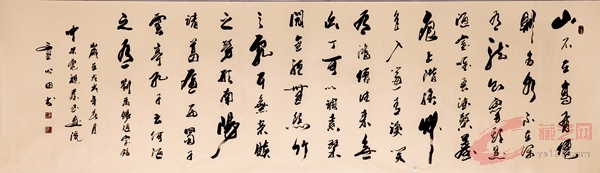 山不在高有仙
则名水不在深
有龙则灵斯是
陋室惟吾德馨苔
痕上阶绿草
色入帘青谈笑
有鸿儒往来无
白丁可以调素琴
阅金经無丝竹
之乱耳无案牍
之劳形南陽
诸葛庐西蜀子
雲亭孔子云何陋
之有 劉禹锡陋室铭
戊戌年春月
中央電視台书画院